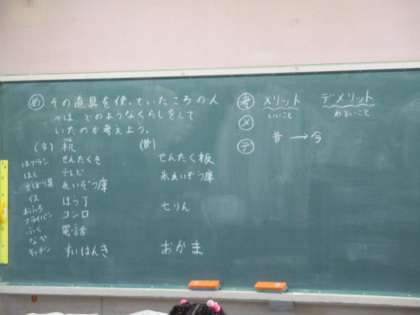 め その道具を使っていたころの人
々は どのようなくらしをして
いたのか考えよう。
(今) 机
(昔)
せんたくき
せんたく板
テレビ
れいぞう庫
氷れいぞう庫
はし
イス
おふろ
フライパン
コンロ
七りん
電話
なべ
すいはんき
おかま
メリット
いいこと
デメリット
わるいこと
メ
デ
昔 → 今